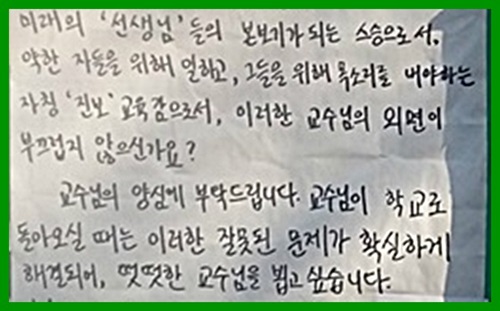 미래의 '선생님'들의 본보기가 되는 스승으로서,
약한 자들을 위해 일하고, 그들을 위해 목소리를 내야하는
자칭 '진보' 교육감으로서, 이러한 교수님의 외면이
부끄럽지 않으신가요?
교수님의 양심에 부탁드립니다. 교수님이 학교로
돌아오실 때는 이러한 잘못된 문제가 확실하게
해결되어, 떳떳한 교수님을 뵙고 싶습니다.